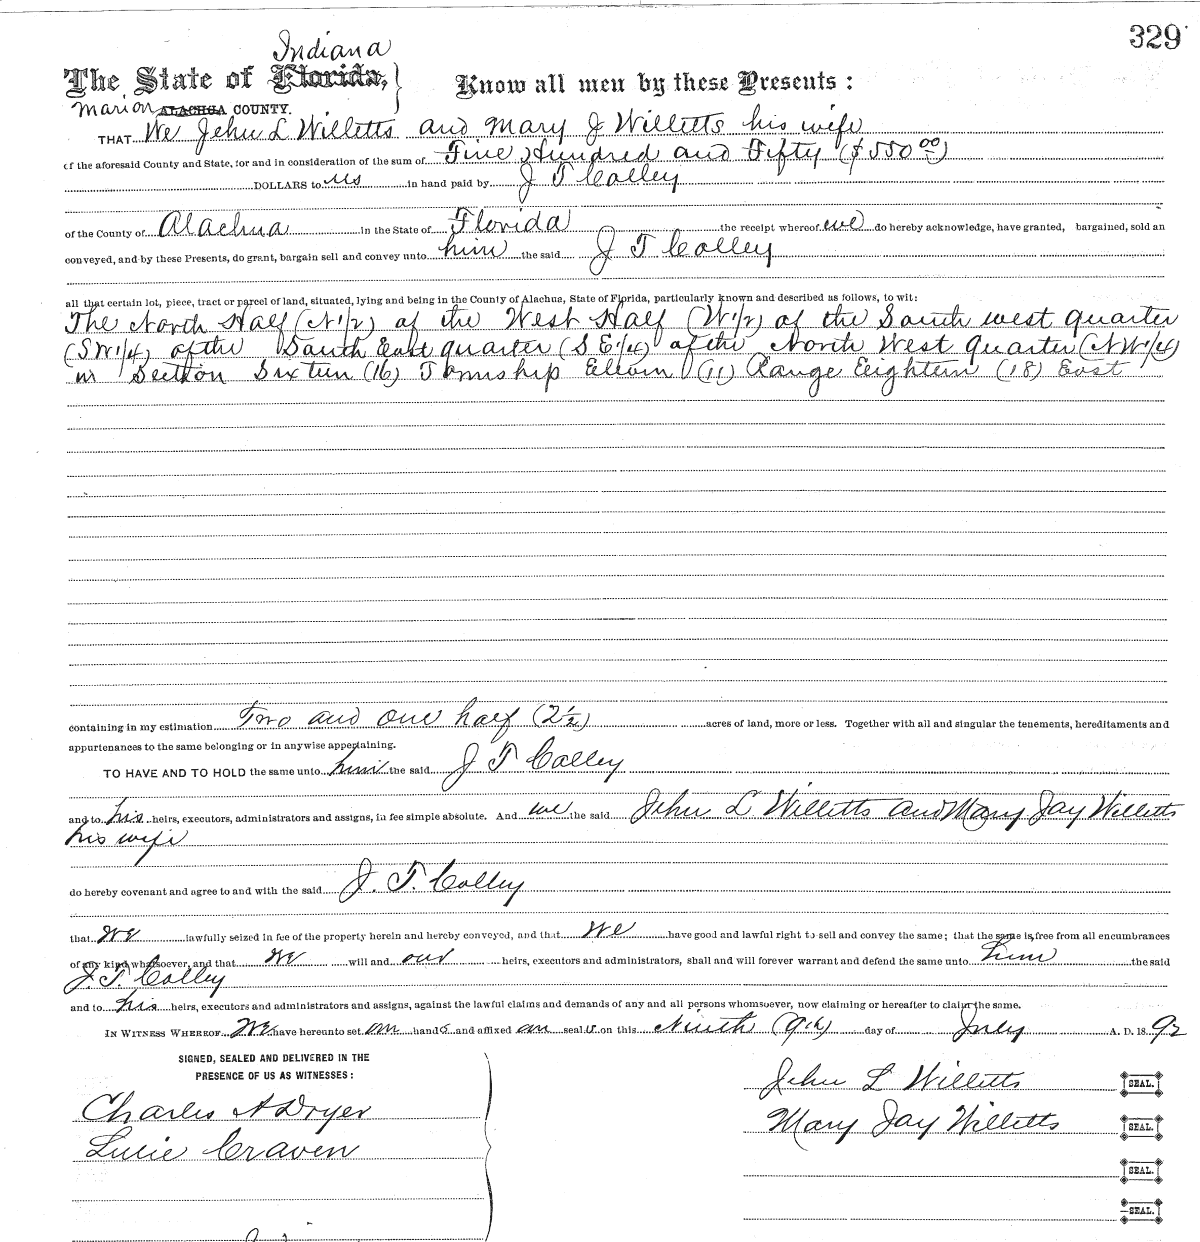 329
Indiana
The State of Florida,
Know all men by these Presents:
Marion ALACHUA COUNTY.
THAT We Jehu L Willetts and Mary J Willetts his wife
of the aforesaid County and State, for and in consideration of the sum of Five Hundred and Fifty ($550 00)
DOLLARS to us in hand paid by J T Colley
of the County of Alachua in the State of Florida the receipt whereof we do hereby acknowledge, have granted, bargained, sold an
conveyed, and by these Presents, do grant, bargain sell and convey unto him the said J T Colley
all that certain lot, piece, tract or parcel of land, situated, lying and being in the County of Alachua, State of Florida, particularly known and described as follows, to wit:
The North Half (N1/2) of the West Half (W1/2) of the South west quarter
(SW1/4) of the South East quarter (SE1/4) of the North West quarter (NW1/4)
in Section Sixteen (16) Township Eleven (11) Range Eighteen (18) East
containing in my estimation Two and one half (2½) acres of land, more or less. Together with all and singular the tenements, hereditaments and
appurtenances to the same belonging or in anywise appertaining.
TO HAVE AND TO HOLD the same unto him the said J T Colley
and to his heirs, executors, administrators and assigns, in fee simple absolute. And we the said Jehu L Willetts and Mary Jay Willetts
his wife
do hereby covenant and agree to and with the said J. T. Colley
that we lawfully seized in fee of the property herein and hereby conveyed, and that we have good and lawful right to sell and convey the same; that the same is free from all encumbrances
of any kind whatsoever, and that we will and our heirs, executors and administrators, shall and will forever warrant and defend the same unto him the said
J. T. Colley
and to his heirs, executors and administrators and assigns, against the lawful claims and demands of any and all persons whomsoever, now claiming or hereafter to claim the same.
IN WITNESS WHEREOF We have hereunto set our hands and affixed our seals on this Ninth (9th) day of July A. D. 1892
SIGNED, SEALED AND DELIVERED IN THE
PRESENCE OF US AS WITNESSES:
Charles A Dryer
Lucie Craven
Jehu L Willetts SEAL.
Mary Jay Willetts SEAL.
SEAL.
SEAL.